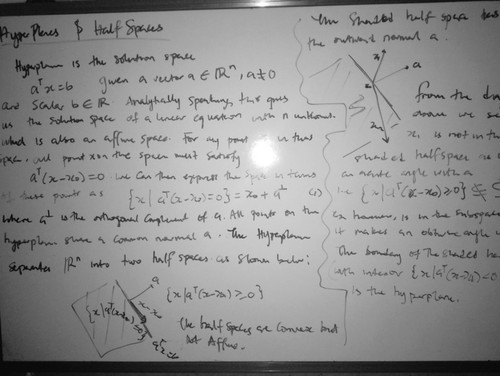 HyperPlanes & Half Spaces
Hyperplane is the solution space
aᵀx=b given a vector a ∈ ℝⁿ, a≠0
and Scalar b ∈ ℝ. Analytically speaking, this gives
us the solution space of a linear equation with n unknowns
which is also an affine space. For any point in that
space, all points x on the space must satisfy
aᵀ(x-x₀)=0 we can then express the space in terms
of these points as {x | aᵀ(x-x₀)=0} = x₀ + a⊥
where a⊥ is the orthogonal complement of a. All points on the
hyperplane share a common normal a. The Hyperplane
separates ℝⁿ into two half spaces as shown below:
a
{x | aᵀ(x-x₀) ≥ 0}
x-x₀
{x | aᵀ(x-x₀) ≤ 0}
aᵀx=b
The half spaces are Convex but
not Affine.
The Shaded half space has
the outward normal a.
a
x₁
from the
above we see
x₁ is not in the
shaded halfspace as
an acute angle with a
{x | aᵀ(x-x₀) ≥ 0}
x₂ however, is in the subspace
it makes an obtuse angle
The boundary of the shaded
with interior {x | aᵀ(x-x₀) < 0
is the hyperplane.